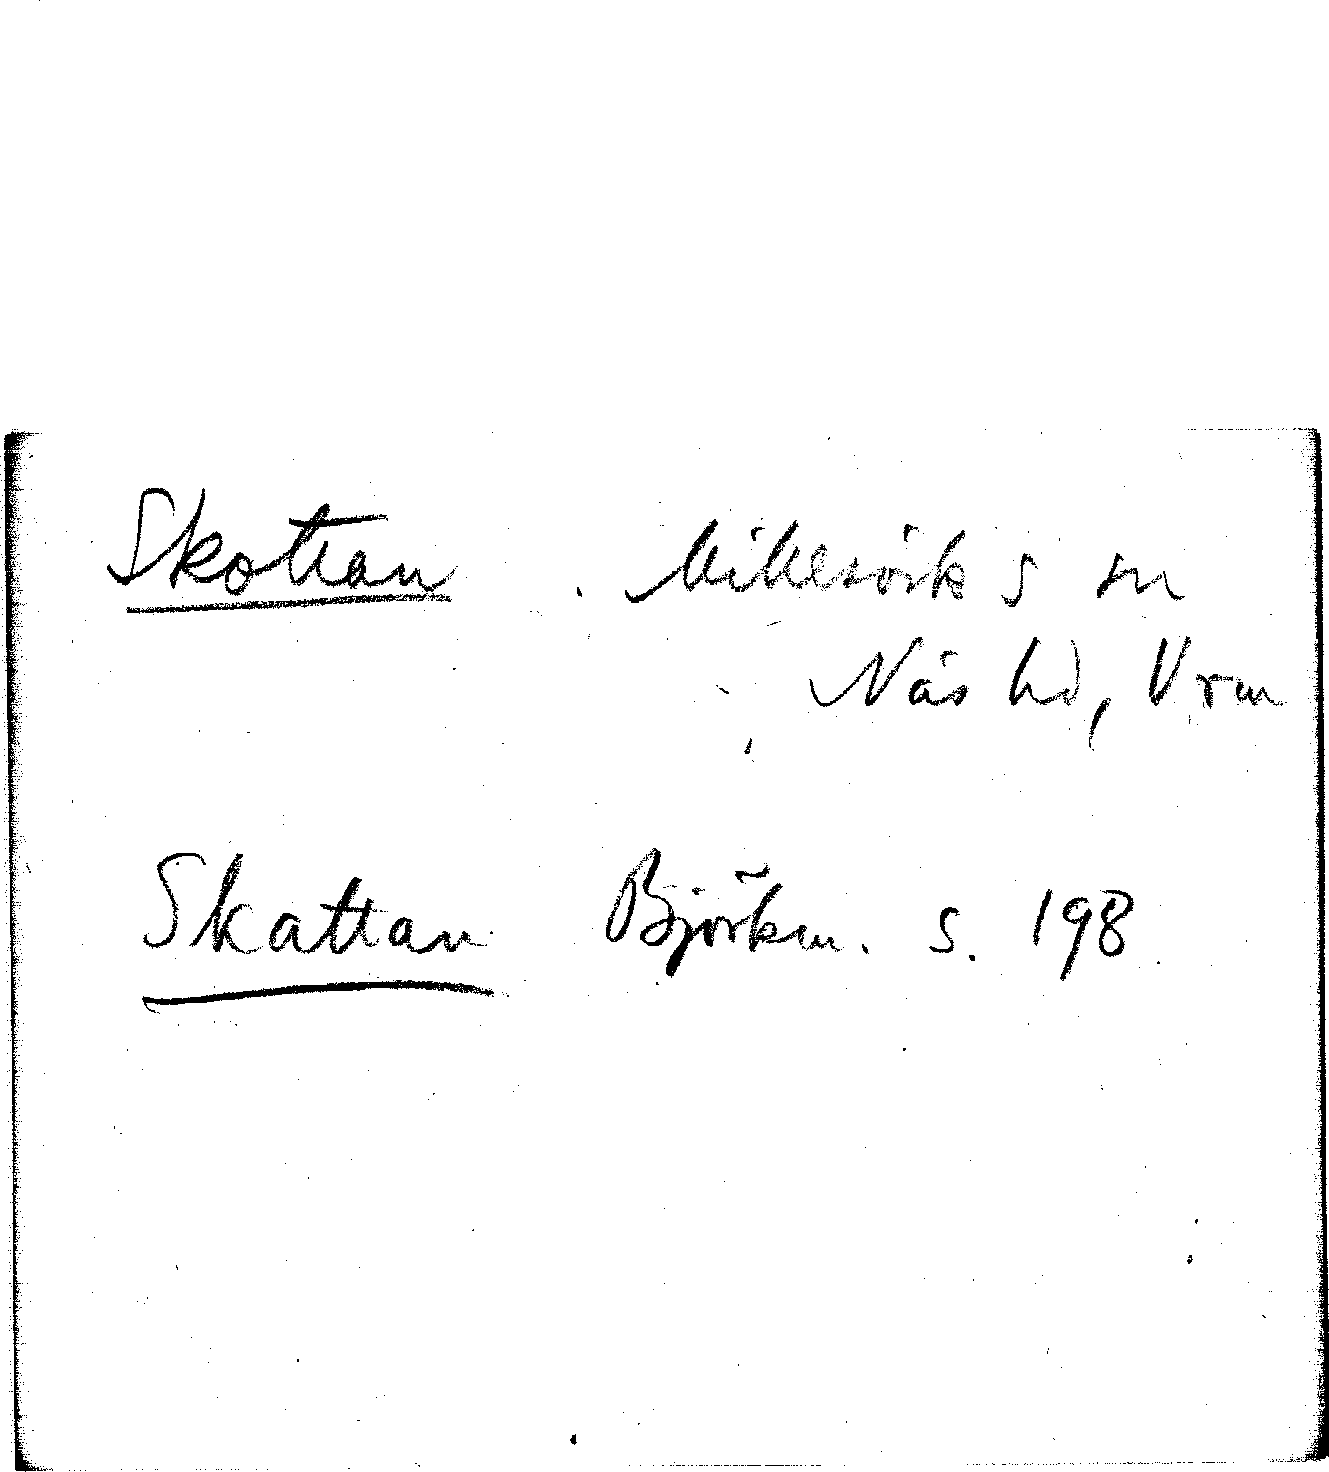 Skottan. Millesvik s sn
Näs hd, Vrm
Skattan Björkm. s. 198